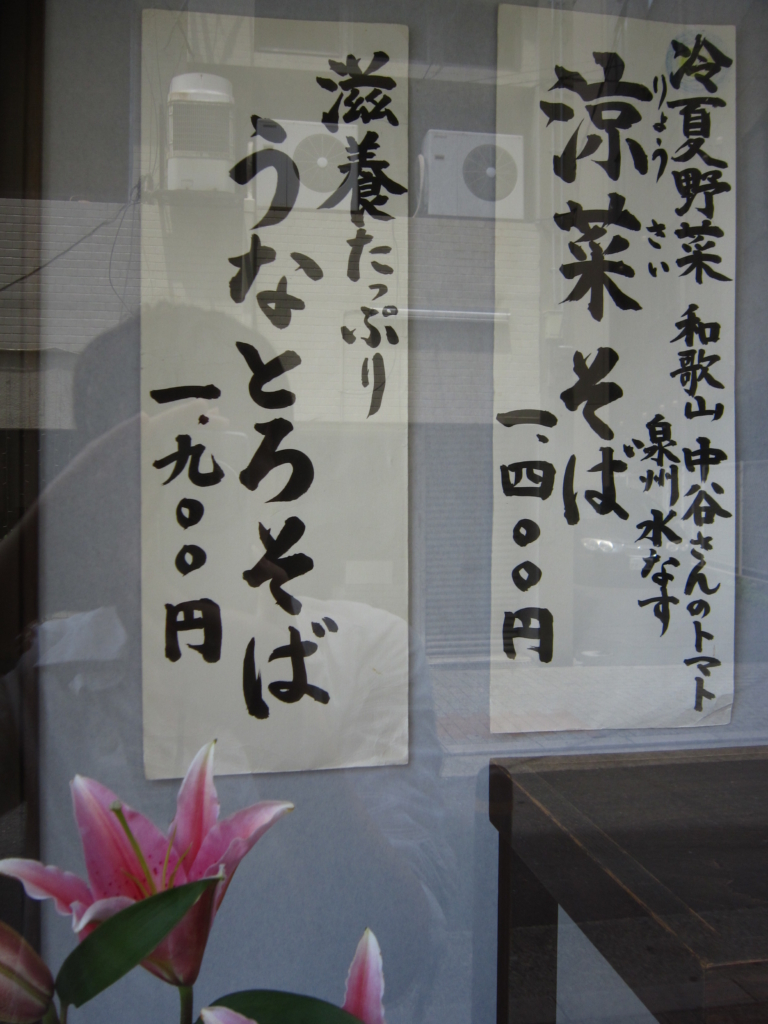 冷夏野菜 和歌山 中谷さんのトマト
泉州 水なす
りょうさい
涼菜そば
一、四〇〇円
滋養たっぷり
うなとろそば
一、九〇〇円